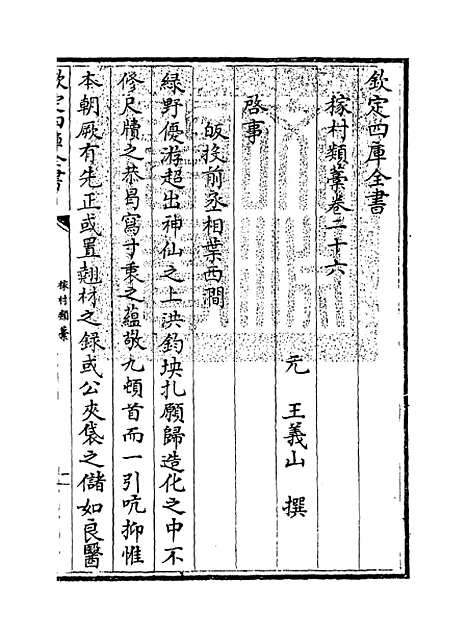 欽定四庫全書
稼村類藁卷二十六
元 王義山 撰
啓事
皈投前丞相葉西澗
綠野優游超出神仙之上洪鈞坱扎願歸造化之中不
修尺牘之恭曷寫寸衷之蘊敬九頓首而一引吭抑惟
本朝厥有先正或置翹材之錄或公夾袋之儲如良醫
欽定四庫全書
稼村類藁
一